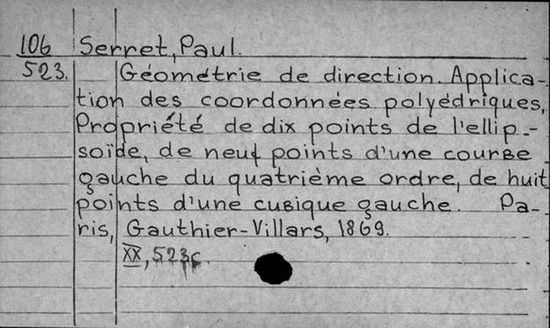 106 Serret, Paul.
523. Géometrie de direction. Applica-
tion des coordonnées polyédriques,
Propriété de dix points de l'ellip-
soïde, de neuf points d'une courbe
gauche du quatrième ordre, de huit
points d'une cubique gauche. Pa-
ris, Gauthier-Villars, 1869.
XX, 523 c.